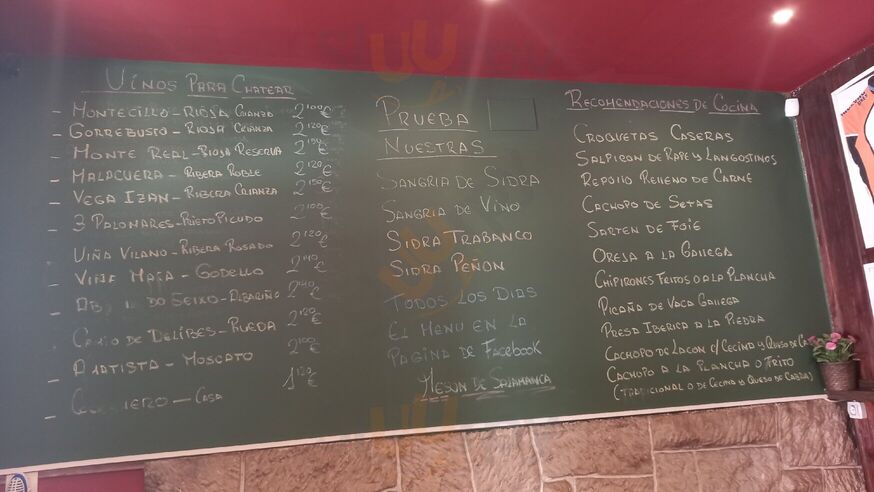 VINOS PARA CHATEAR
- MONTECILLO - RIOJA CRIANZA 2'00€
- GORREBUSTO - RIOJA CRIANZA 2'20€
- MONTE REAL - RIOJA RESERVA 2'50€
- MALACUERA - RIBERA ROBLE 2'20€
- VEGA IZAN - RIBERA CRIANZA 2'50€
- 3 PALOMARES - PRIETO PICUDO 2'00€
- VIÑA VILANO - RIBERA ROSADO 2'20€
- VIÑA MAGA - GODELLO 2'40€
- DO SEIXO - ALBARIÑO 2'40€
- DE DELIBES - RUEDA 2'20€
- MOSCATO 2'00€
- CASA 1'20€
PRUEBA
NUESTRAS
SANGRIA DE SIDRA
SANGRIA DE VINO
SIDRA TRABANCO
SIDRA PEÑON
TODOS LOS DIAS
EL MENU EN LA
PAGINA DE FACEBOOK
MESON DE SALAMANCA
RECOMENDACIONES DE COCINA
CROQUETAS CASERAS
SALPICON DE RAPE Y LANGOSTINOS
REPOLLO RELLENO DE CARNE
CACHOPO DE SETAS
SARTEN DE FOIE
OREJA A LA GALLEGA
CHIPIRONES FRITOS O A LA PLANCHA
PICAÑA DE VACA GALLEGA
PRESA IBERICA A LA PIEDRA
CACHOPO DE LACON C/ CECINA Y QUESO DE
CACHOPO A LA PLANCHA O FRITO
(TRADICIONAL O DE CECINA Y QUESO DE CABRA)